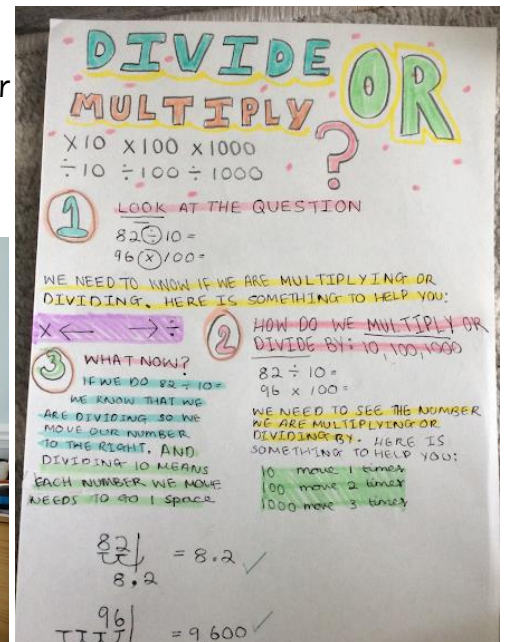 r
DIVIDE
OR
MULTIPLY
?
X10 X100 X1000
÷10 ÷100 ÷1000
1
LOOK AT THE QUESTION
82÷10=
96×100=
WE NEED TO KNOW IF WE ARE MULTIPLYING OR
DIVIDING. HERE IS SOMETHING TO HELP YOU:
X← →÷
2
HOW DO WE MULTIPLY OR
DIVIDE BY: 10,100,1000
82 ÷ 10=
96 x 100=
WE NEED TO SEE THE NUMBER
WE ARE MULTIPLYING OR
DIVIDING BY. HERE IS
SOMETHING TO HELP YOU:
10 move 1 times
100 move 2 times
1000 move 3 times
3
WHAT NOW?
IF WE DO 82 ÷ 10=
WE KNOW THAT WE
ARE DIVIDING SO WE
MOVE OUR NUMBER
TO THE RIGHT. AND
DIVIDING 10 MEANS
EACH NUMBER WE MOVE
NEEDS TO GO 1 space
82 = 8.2 ✓
8.2
96 = 9600 ✓